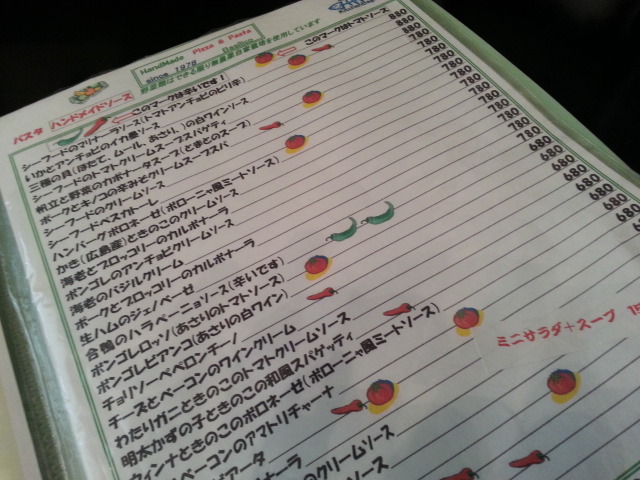 HandMade Pizza & Pasta
since 1978
野菜類はできる限り無農薬自家栽培を使用しています
パスタ ハンドメイドソース
このマークはトマトソース
このマークは辛いです!
シーフードのマリナーラソース(トマトアンチョビのピリ辛) 880
いかとアンチョビのイカ墨ソース 880
三種の貝(ほたて、ムール、あさり、)の白ワインソース 780
シーフードのトマトクリームスープスパゲティ 780
帆立と野菜のカポナータスープ(とまとのスープ) 780
ポークとキノコの辛みそクリームスープスパ 780
シーフードのクリームソース 780
シーフードペスカトーレ 780
ハンバーグボロネーゼ(ボローニャ風ミートソース) 780
かき(広島産)ときのこのクリームソース 780
海老とブロッコリーのカルボナーラ 680
ボンゴレのアンチョビクリームソース 680
海老のバジルクリーム 680
ポークとブロッコリーのカルボナーラ 680
生ハムのジェノベーゼ 680
合鴨のハラペーニョソース(辛いです) 680
ボンゴレロッソ(あさりのトマトソース)
ボンゴレビアンコ(あさりの白ワイン)
チョリソーペペロンチーノ
チーズとベーコンのワインクリーム
わたりガニときのこのトマトクリームソース
明太かずの子ときのこの和風スパゲッティ
ウィンナときのこのボロネーゼ(ボローニャ風ミートソース)
ベーコンのアマトリチャーナ
ビアータ
ナーラ
のクリームソース
ソース
ミニサラダ+スープ 15